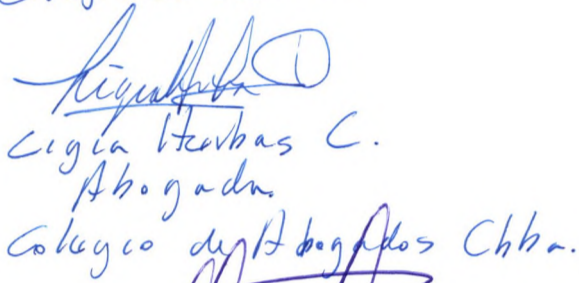 Ligia Iturbas C.
Abogada
Colegio de Abogados Cbba.